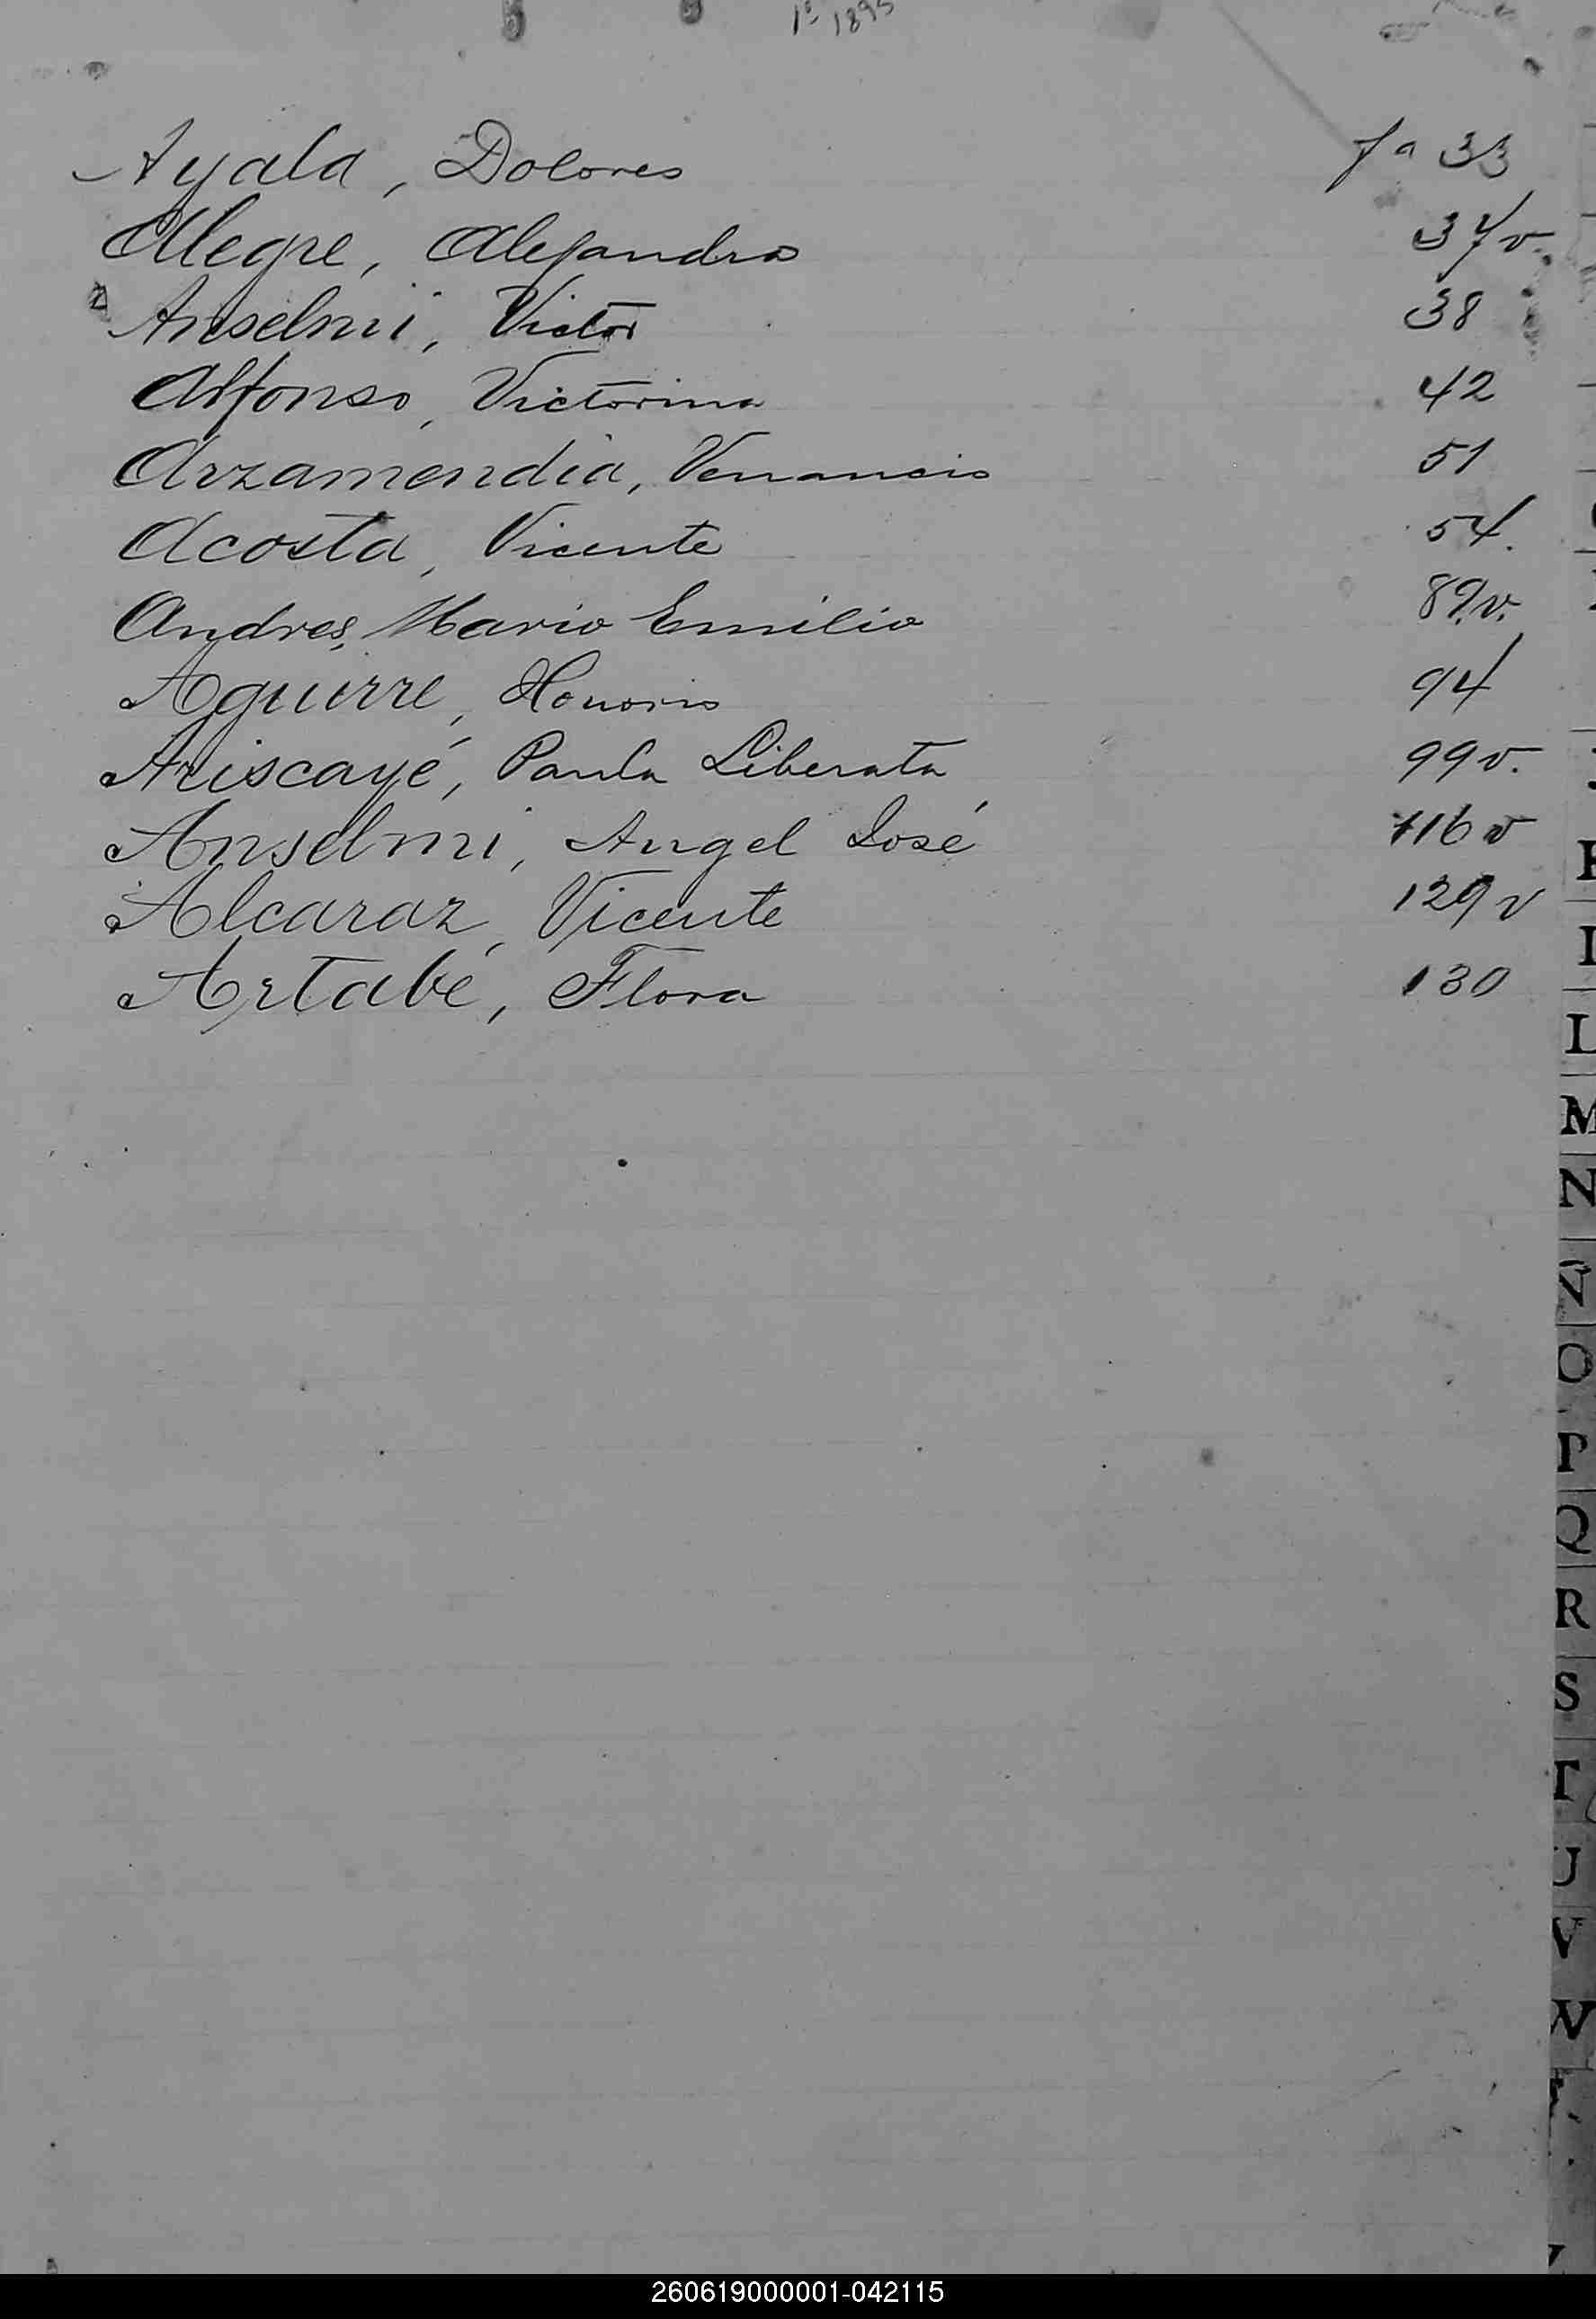 1º 1895
Ayala, Dolores fª 33
Alegre, Alejandro 37v.
Anselmi, Victor 38
Alfonso, Victorina 42
Arzamendia, Venancio 51
Acosta, Vicente 54.
Andres, Mario Emilio 89v.
Aguirre, Honorio 94
Ariscayé, Paula Liberata 99v.
Anselmi, Angel José 116v
Alcaraz, Vicente 129v
Artabé, Flora 130
L
M
N
O
P
Q
R
S
T
U
V
W
260619000001-042115